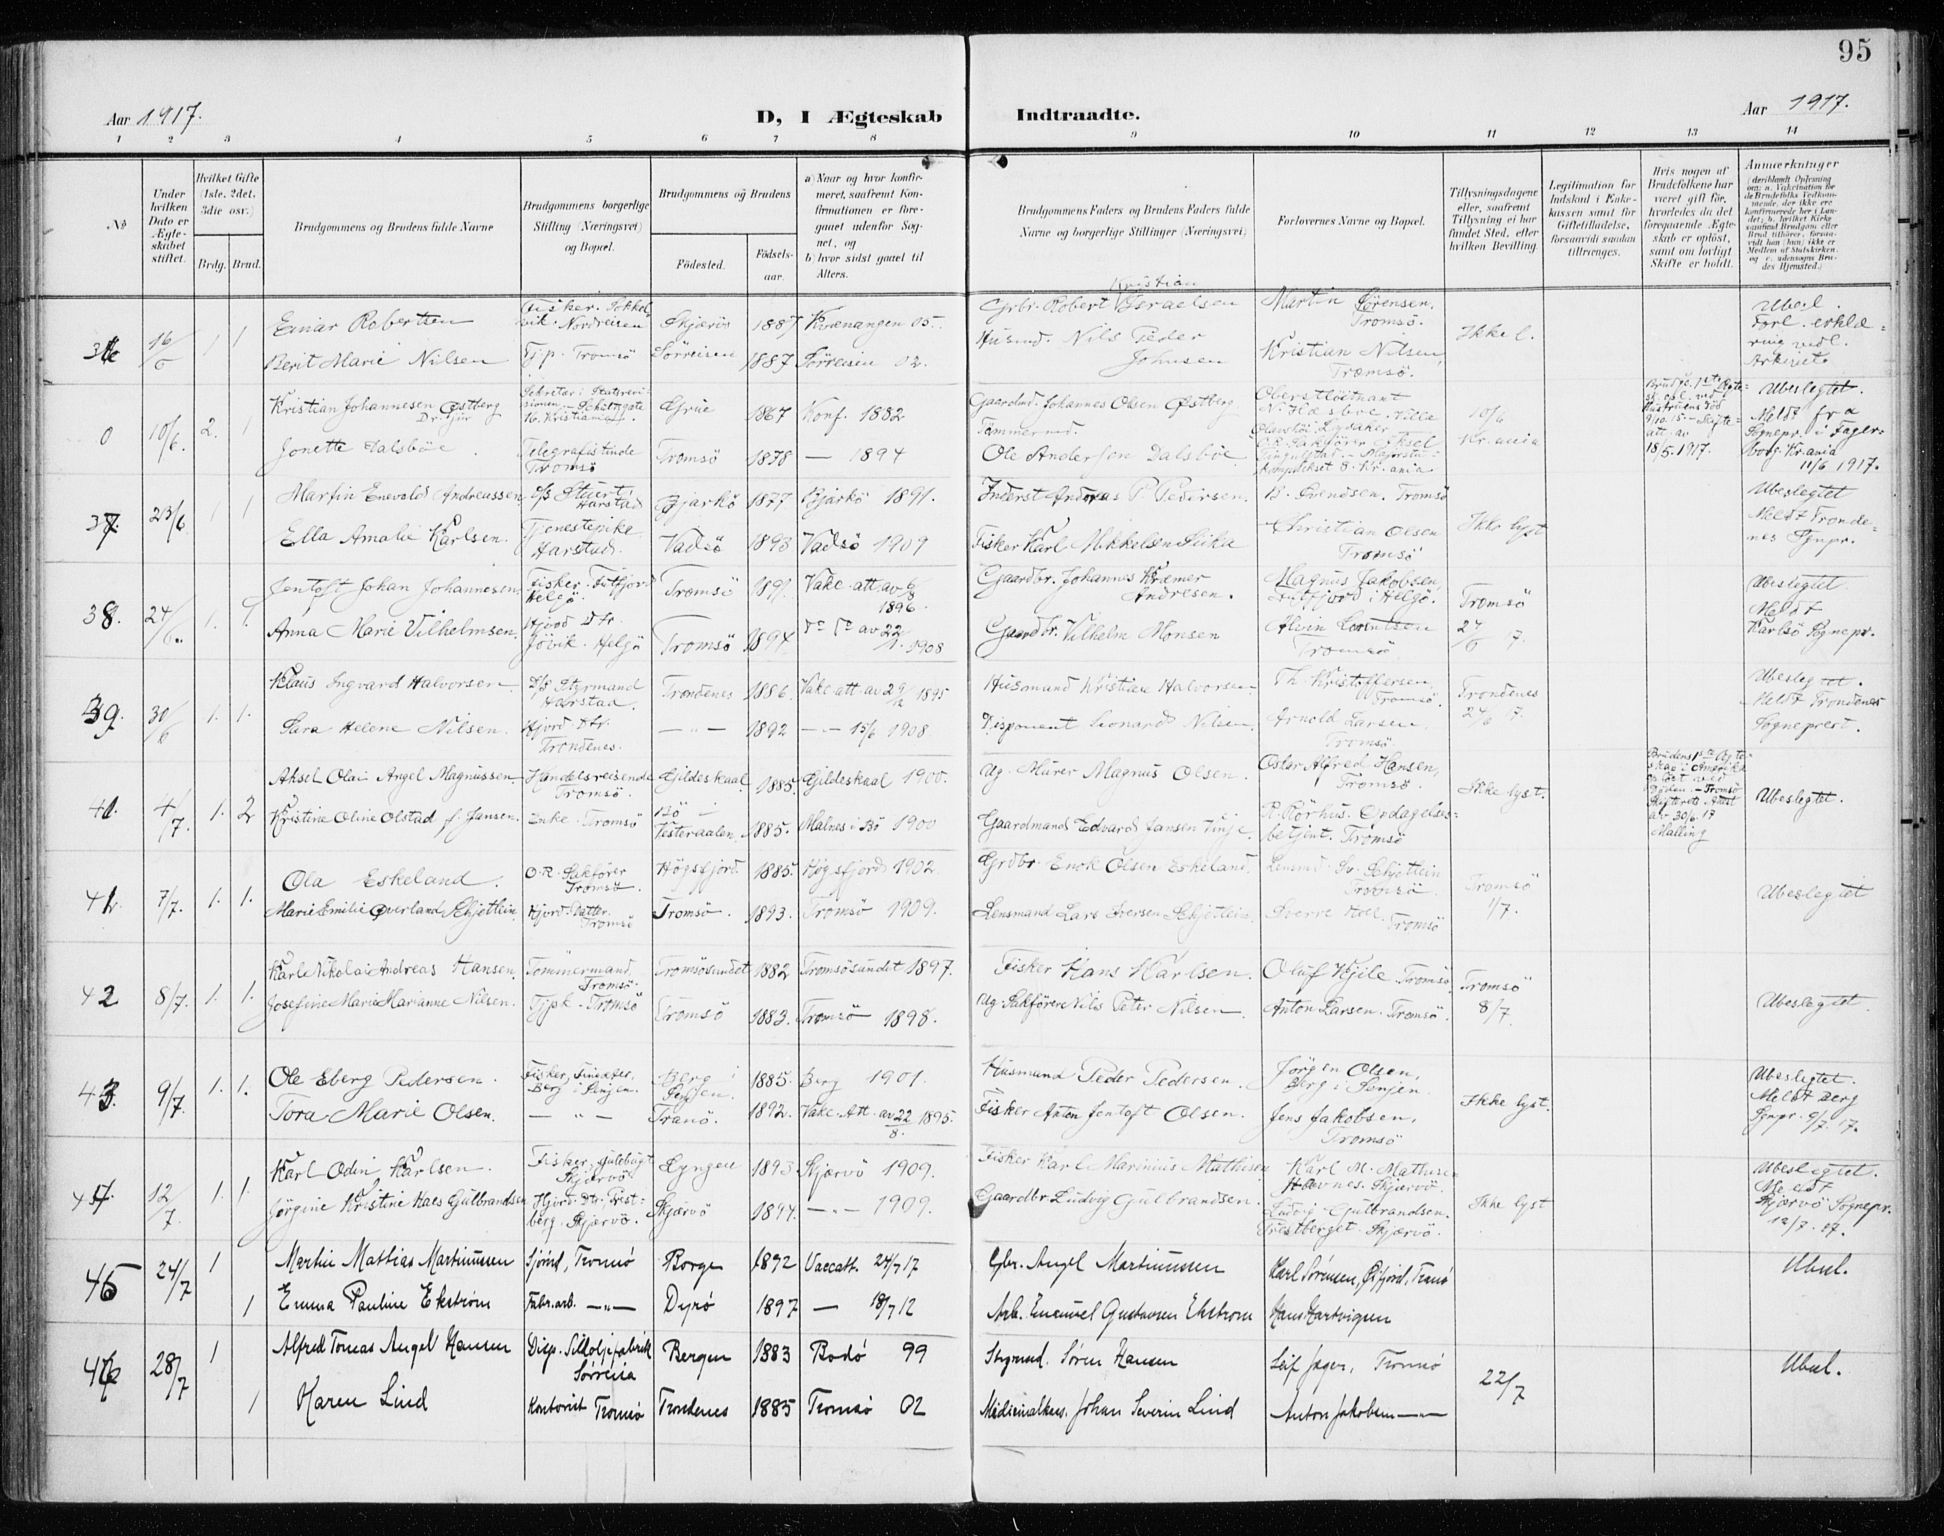 95
Aar 1917. D, I Ægteskab Indtraadte. Aar 1917.
1 2 3 4 5 6 7 8 9 10 11 12 13 14
No
Under hvilken Dato er Ægteskabet stiftet.
Hvilket Gifte (1ste, 2det, 3die osv.)
Brdg. Brud.
Brudgommens og Brudens fulde Navne
Brudgommens borgerlige Stilling (Næringsvei) og Bopæl.
Brudgommens og Brudens
Fødested.
Fødselsaar.
a) Naar og hvor konfirmeret, saafremt Konfirmationen er foregaaet udenfor Sognet, og
b) hvor sidst gaaet til Alters.
Brudgommens Faders og Brudens Faders fulde Navne og borgerlige Stillinger (Næringsvei)
Forlovernes Navne og Bopæl.
Tillysningsdagene eller, saafremt Tillysning ei har fundet Sted, efter hvilken Bevilling.
Legitimation for Indskud i Enkekassen samt for Giftetilladelse, forsaavidt saadan tiltrænges.
Hvis nogen af Brudefolkene har været gift før, hvorledes da det foregaaende Ægteskab er opløst, samt om lovligt Skifte er holdt.
Anmærkninger
16/6 1 1 Einar Robertsen Fisker. Sokkelvik. Nordreisen Skjærvö 1887 Kvænangen 05. Grbr. Robert Kristian Israelsen Martin Sörensen. Tromsö. Ikke l. Ubesl. Forl. erklæring vedl. Arkivet.
Berit Marie Nilsen Tjp. Tromsö Sörreisen 1887 Sörreisen 02. Husmd. Nils Peder Johnsen Kristian Nilsen, Tromsö.
0 10/6. 2. 1 Kristian Johannesen Østberg Sekretær i Statsrevisionen Grue 1867 Konf. 1882 Gaardmd. Johannes Olsen Østberg 10/6 Kr.ania 18/5 1917. Ubeslegtet. Meldt fra Sognepr. i Fagerborg Kr.ania 11/6 1917.
Jonette Dalsböe. Telegrafistinde Tromsö Tromsö 1878 — 1894 Ole Andersen Dalsböe
37 23/6 1 1 Martin Enevold Andreassen D/S Stuert Harstad Bjarkö 1877 Bjarkö 1891. Inderst Andreas P. Pedersen. B. Svendsen. Tromsö Ikke lyst Ubeslegtet Meldt Trondenes Sgnpr.
Ella Amalie Karlsen. Tjenestepike Harstad. Vadsö 1893 Vadsö 1909 Fisker Karl Mikkelsen Slika Christian Olsen Tromsö
38. 24/6. 1. 1. Jentoft Johan Johannesen Fisker. Futfjord Helgö. Tromsö 1891. Vakc. att. av 6/8 1896. Gaardbr. Johannes Kræmer Andresen. Magnus Jakobsen, Futfjord i Helgö. Tromsö 24/6 17. Ubeslegtet Meldt Karlsö Sognepr.
Anna Marie Vilhelmsen. Hjvd. Dtr. Jövik. Helgö Tromsö 1894. do do av 22/1. 1908 Gaardbr. Vilhelm Monsen Alvin Lorentsen Tromsö
39. 30/6 1. 1. Klaus Ingvard Halvorsen. D/S Styrmand Harstad. Trondenes 1886. Vakc. att. av 29/12 1895 Husmand Kristian Halvorsen Th. Kristoffersen, Tromsö. Trondenes 24/6 17. Ubeslegtet. Meldt Trondenes Sogneprest.
Sara Helene Nilsen. Hjvd. Dtr. Trondenes. — „ — 1892 — „ — 15/6 1908 Disponent Leonard Nilsen. Arnold Larsen. Tromsö
4/7. 1. 2 Aksel Olai Angel Magnussen Handelsreisende Tromsö. Gildeskaal 1885. Gildeskaal 1900. Ug. Murer Magnus Olsen. Oskar Alfred Hansen, Tromsö. Ikke lyst. Ubeslegtet.
Kristine Oline Olstad f. Jansen. Enke. Tromsö Bö i Vesteraalen. 1885. Malnes i Bö 1900 Gaardmand Edvard Jansen Vinje. R. Rörhus. Opdagelsesbetjent. Tromsö
41. 7/7. 1. 1. Ola Eskeland. O.R. Sakförer Tromsö. Högsfjord. 1885. Högsfjord 1902. Grdbr. Enok Olsen Eskeland. Lensmd. Sv. Schjetlein Tromsö Tromsö 1/7. Ubeslegtet
Marie Emilie Qverland Schjetlein Hjvd. Datter. Tromsö Tromsö. 1893. Tromsö 1909. Lensmand Lars Iversen Schjetlein. Sverre Koel. Tromsö
42 8/7. 1. 1. Karl Nikolai Andreas Hansen. Tømmermand. Tromsö. Tromsösundet 1882 Tromsösundet 1897. Fisker Hans Karlsen. Oluf Kjile. Tromsö. Tromsö 8/7. Ubeslegtet.
Josefine Marie Marianne Nilsen. Tjpk. Tromsö Tromsö 1883. Tromsö 1898. Ug. Sakförer Nils Peter Nilsen. Anton Larsen. Tromsö.
43. 9/7. 1. 1. Ole Eberg Pedersen. Fisker, Finsæter, Berg i Senjen. Berg i Senjen. 1885. Berg 1901. Husmand Peder Pedersen. Jörgen Olsen, Berg i Senjen. Ikke lyst. Ubeslegtet. Meldt Berg Sgnpr. 9/7. 17.
Tora Marie Olsen. — „ — Tranö. 1892. Vakc. Att. av 22/8. 1895. Fisker Anton Jentoft Olsen. Jens Jakobsen, Tromsö
12/7. 1. 1. Karl Odin Karlsen. Fisker, Skjærvö Lyngen 1893 Skjærvö 1909. Fisker Karl Marinius Mathisen Karl M. Mathisen Havnes. Skjærvö. Ikke lyst Ubeslegtet. Meldt Skjærvö Sognepr. 12/7. 17.
Jörgine Kristine Hals Gulbrandsen Hjvd. Dtr. Trestberg. Skjærvö. Skjærvö 1894. — „ — 1909. Gaardbr. Ludvig Gulbrandsen. Ludvig Gulbrandsen. Trestberget. Skjærvö.
45 24/7 1 Martin Mattias Martinussen Sjømd, Tromsø Borge 1892 Vaccatt. 24/7 17 Gbr. Angel Martinussen Karl Sørensen, Tromsø Ubesl.
1 Emma Pauline Ekstrøm Fabr.arb. — „ — Dyrø 1897 — 18/7 12 Arb. Emanuel Gustavsen Ekstrøm Hans Hartvigsen
46 28/7 1 Alfred Tomas Angel Hansen Disp. Sildoljefabrik Sørreisa Bergen 1883 Bodø 99 Styrmd. Søren Hansen Leif Jæger, Tromsø 22/7 Ubesl.
1 Karen Lind Kontorist Tromsø Trondenes 1885 Tromsø 02 Medicinalkus. Johan Severin Lind Anton Jakobsen — „ —